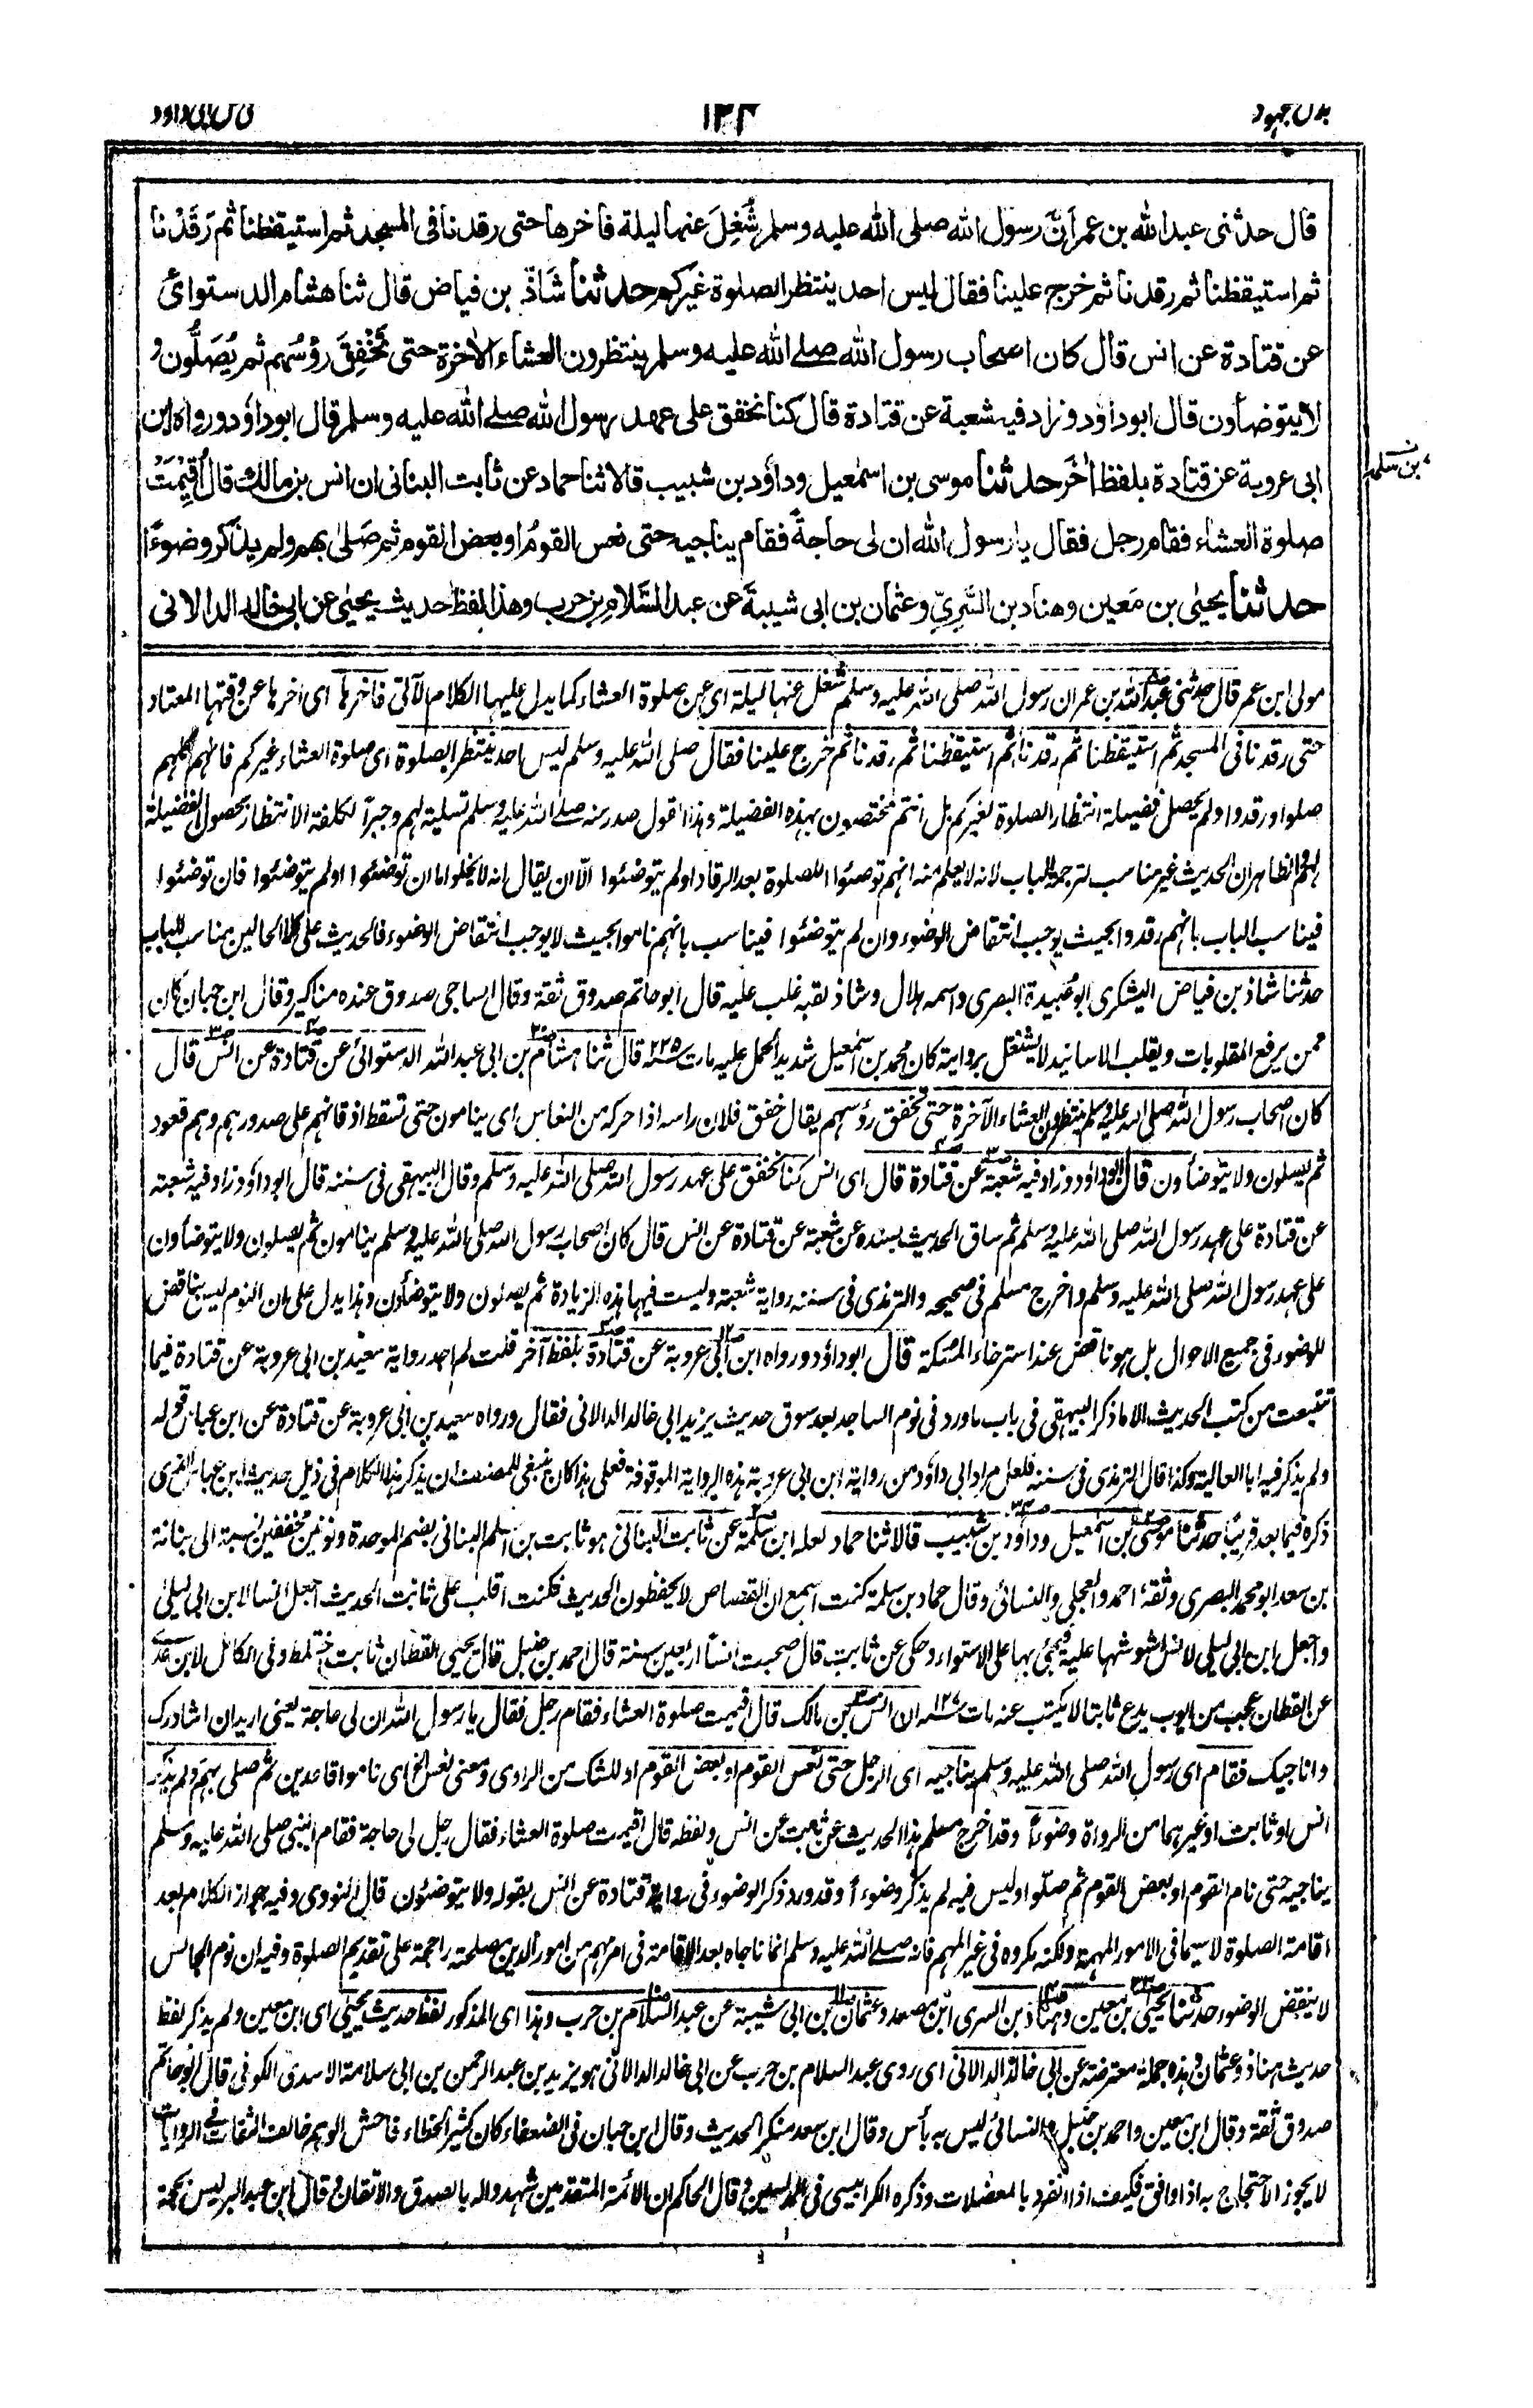 بذل المجهود ١٢٢ فى حل ابى داود
قال حدثنى عبدالله بن عمر أنّ رسول الله صلى الله عليه وسلم شُغِلَ عنها ليلة فاخرها حتى رقدنا فى المسجد ثم استيقظنا ثم رَقَدْنا
ثم استيقظنا ثم رقدنا ثم خرج علينا فقال ليس احد ينتظر الصلوة غيركم حدثنا شاذّ بن فياض قال ثنا هشام الدستوائى
عن قتادة عن انس قال كان اصحاب رسول الله صلے الله عليه وسلم ينتظرون العشاء الاٰخرة حتى تَخْفِقَ رؤسُهم ثم يُصَلُّون و
لا يتوضأون قال ابوداؤد وزاد فيه شعبة عن قتادة قال كنا نخفق على عهد رسول الله صلے الله عليه وسلم قال ابوداؤد ورواه ابن
ابى عروبة عن قتادة بلفظ اٰخَر حدثنا موسى بن اسمٰعيل وداؤد بن شبيب قالا ثنا حماد عن ثابت البنانى ان انس بن مالك قال اُقِيْمَتْ
بن سلمة
صلوة العشاء فقام رجل فقال يا رسول الله ان لى حاجةً فقام يناجيه حتى نعس القومُ او بعض القوم ثم صَلّٰى بهم ولم يذكر وضوءًا
حدثنا يحيٰى بن مَعين وهناد بن السَّرِيّ وعثمان بن ابى شيبةَ عن عبد السَّلام بن حرب وهذا لفظ حديث يحيٰى عن ابى خالد الدالانى
مولى ابن عمر قال حدثنى عبدالله بن عمر ان رسول الله صلى الله عليه وسلم شغل عنها ليلة اى عن صلوة العشاء كما يدل عليها الكلام الآتى فاخرها اى أخرها عن وقتها المعتاد
حتى رقدنا فى المسجد ثم استيقظنا ثم رقدنا ثم استيقظنا ثم رقدنا ثم خرج علينا فقال صلى الله عليه وسلم ليس احد ينتظر الصلوة اى صلوة العشاء غيركم فانهم كلهم
صلوا ورقدوا ولم يحصل فضيلة انتظار الصلوة لغيركم بل انتم مختصون بهذه الفضيلة وهذا القول صدر منه صلے الله عليه وسلم تسلية لهم وجبرًا لكلفة الانتظار بحصول الفضيلة
لهم والظاهر ان الحديث غير مناسب لترجمة الباب لانه لا يعلم منه انهم توضئوا للصلوة بعد الرقاد او لم يتوضئوا الّا ان يقال انه لا يخلو اما ان توضئوا او لم يتوضئوا فان توضئوا
فيناسب الباب بانهم رقدوا بحيث يوجب انتقاض الوضوء وان لم يتوضئوا فيناسب بانهم ناموا بحيث لا يوجب انتقاض الوضوء فالحديث على كلا الحالين مناسب للباب
حدثنا شاذ بن فياض اليشكرى ابو عُبيدة البصرى واسمه هلال وشاذ لقبه غلب عليه قال ابو حاتم صدوق ثقة وقال الساجى صدوق عنده مناكير وقال ابن حبان كان
ممن يرفع المقلوبات ويقلب الاسانيد لا يشتغل بروايته كان محمد بن اسمٰعيل شديد الحمل عليه مات ٢٢٥ه قال ثنا هشام بن ابى عبدالله الدستوائى عن قتادة عن انس قال
كان اصحاب رسول الله صلى الله عليه وسلم ينتظرون العشاء الآخرة حتى تخفق رؤسهم يقال خفق فلان راسه اذا حركه من النعاس اى ينامون حتى تسقط اذقانهم على صدورهم وهم قعود
ثم يصلون ولا يتوضأون قال ابوداؤد وزاد فيه شعبة عن قتادة قال اى انس كنا نخفق على عهد رسول الله صلى الله عليه وسلم وقال البيهقى فى سننه قال ابوداؤد زاد فيه شعبة
عن قتادة على عهد رسول الله صلى الله عليه وسلم ثم ساق الحديث بسنده عن شعبة عن قتادة عن انس قال كان اصحاب رسول الله صلى الله عليه وسلم ينامون ثم يصلون ولا يتوضأون
على عهد رسول الله صلى الله عليه وسلم واخرج مسلم فى صحيحه والترمذى فى سننه رواية شعبة وليست فيها هذه الزيادة ثم يصلون ولا يتوضأون وهذا يدل على ان النوم ليس بناقض
للوضوء فى جميع الاحوال بل هو ناقض عند استرخاء المُسكة قال ابوداؤد ورواه ابن ابى عروبة عن قتادة بلفظ آخر قلت لم اجد رواية سعيد بن ابى عروبة عن قتادة فيما
تتبعت من كتب الحديث الا ما ذكر البيهقى فى باب ما ورد فى نوم الساجد بعد سوق حديث يزيد ابى خالد الدالانى فقال ورواه سعيد بن ابى عروبة عن قتادة عن ابن عباس قوله
ولم يذكر فيه ابا العالية وكذا قال الترمذى فى سننه فلعل مراد ابى داؤد من رواية ابن ابى عروبة هذه الرواية الموقوفة فعلى هذا كان ينبغى للمصنف ان يذكر هذا الكلام فى ذيل حديث ابن عباس الذى
ذكره فيما بعد قريبًا حدثنا موسى بن اسمٰعيل وداؤد بن شبيب قالا ثنا حماد لعله ابن سلمة عن ثابت البنانى هو ثابت بن اسلم البنانى بضم الموحدة ونونين مخففين نسبة الى بنانة
بن سعد ابو محمد البصرى وثقه احمد والعجلى والنسائى وقال حماد بن سلمة كنت اسمع ان القصاص لا يحفظون الحديث فكنت اقلب على ثابت الحديث اجعل انسا لابن ابى ليلى
واجعل ابن ابى ليلى لانس اشوشها عليه فيجئ بها على الاستواء وحكى عن ثابت قال صحبت انساً اربعين سنة قال احمد بن حنبل قال يحيى القطان ثابت اختلط وفى الكامل لابن عدى
عن القطان عجب من ايوب يدع ثابتا لا يكتب عنه مات ١٢٧ه ان انس بن مالك قال اقيمت صلوة العشاء فقام رجل فقال يا رسول الله ان لى حاجة يعنى اريد ان اشاورك
واناجيك فقام اى رسول الله صلى الله عليه وسلم يناجيه اى الرجل حتى نعس القوم او بعض القوم او للشك من الراوى ومعنى نعس الخ اى ناموا قاعدين ثم صلى بهم ولم يذكر
انس او ثابت او غيرهما من الرواة وضوءاً وقد اخرج مسلم هذا الحديث عن ثابت عن انس ولفظه قال اقيمت صلوة العشاء فقال رجل لى حاجة فقام النبى صلى الله عليه وسلم
يناجيه حتى نام القوم او بعض القوم ثم صلّوا وليس فيه لم يذكر وضوءاً وقد ورد ذكر الوضوء فى رواية قتادة عن انس بقوله ولا يتوضئون قال النووى وفيه جواز الكلام بعد
اقامة الصلوة لا سيما فى الامور المهمة ولكنه مكروه فى غير المهم فانه صلے الله عليه وسلم انما ناجاه بعد الاقامة فى امر مهم من امور الدين مصلحته راجحة على تقديم الصلوة وفيه ان نوم الجالس
لا ينقض الوضوء حدثنا يحيى بن معين وهناد بن السرى ابن مصعد وعثمان بن ابى شيبة عن عبد السلام بن حرب وهذا اى المذكور لفظ حديث يحيى اى ابن معين ولم يذكر لفظ
حديث هناد وعثمان وهذه جملة معترضة عن ابى خالد الدالانى اى روى عبد السلام بن حرب عن ابى خالد الدالانى هو يزيد بن عبد الرحمن بن ابى سلامة الاسدى الكوفى قال ابو حاتم
صدوق ثقة وقال ابن معين واحمد بن حنبل والنسائى ليس به بأس وقال ابن سعد منكر الحديث وقال ابن حبان فى الضعفاء كان كثير الخطاء فاحش الوهم خالف الثقات فے الروايات
لا يجوز الاحتجاج به اذا وافق فكيف اذا انفرد بالمعضلات وذكره الكرابيسى فى المدلسين وقال الحاكم ان الائمة المتقدمين شهدوا له بالصدق والاتقان وقال ابن عبد البر ليس بحجة